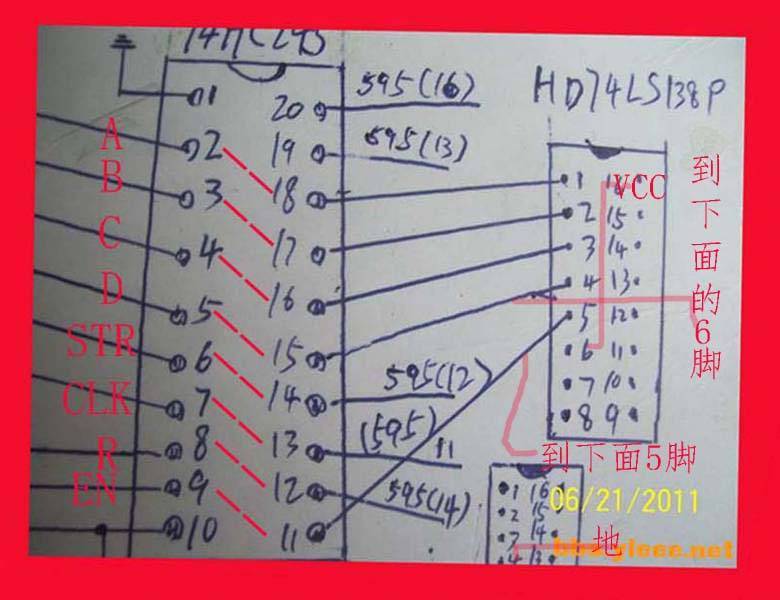 74HC245
HD74LS138P
595(16)
595(13)
595(12)
(595)
11
595(14)
1
2
3
4
5
6
7
8
9
10
20
19
18
17
16
15
14
13
12
11
A
B
C
D
STR
CLK
R
EN
1
2
3
4
5
6
7
8
VCC
15
14
13
12
11
10
9
到下面的6脚
到下面5脚
1 16
2 15
3 14
4 13
06/21/2011
地